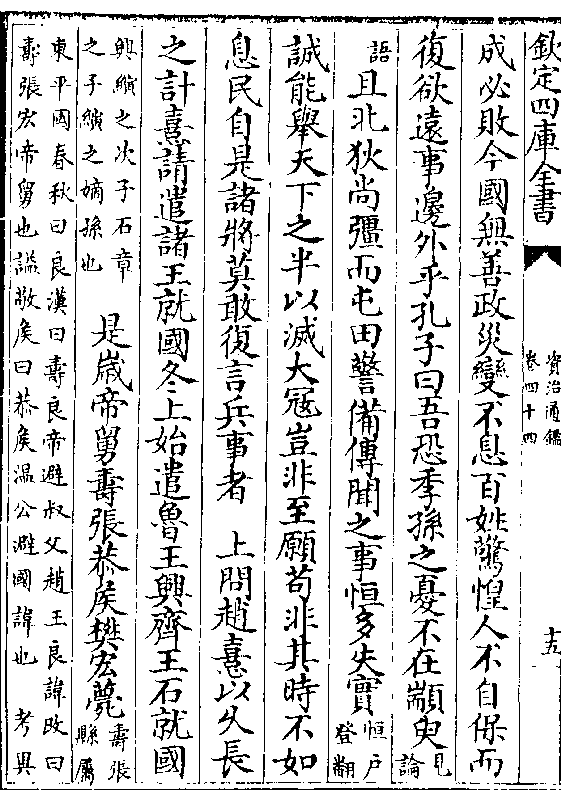 欽定四庫全書
資治通鑑
卷四十四
十五
成必敗今國無善政災變不息百姓驚惶人不自保而
復欲遠事邊外乎孔子曰吾恐季孫之憂不在顓臾見論
語且北狄尚彊而屯田警備傳聞之事恒多失實恒户登翻
誠能舉天下之半以滅大寇豈非至願苟非其時不如
息民自是諸將莫敢復言兵事者 上問趙憙以久長
之計憙請遣諸王就國冬上始遣魯王興齊王石就國
興縯之次子石章之子縯之嫡孫也 是歲帝舅壽張恭侯樊宏薨壽張縣屬
東平國春秋曰良漢曰壽良帝避叔父趙王良諱改曰
壽張宏帝舅也諡敬侯曰恭侯温公避國諱也 考異